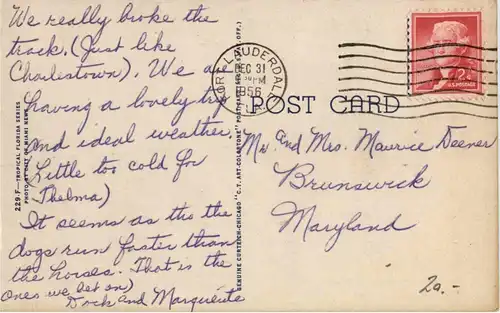 We really broke the
track. (Just like
Charlestown). We are
having a lovely trip
and ideal weather.
(Little too cold for
Thelma)
It seems as tho the
dogs run faster than
the horses. That is the
ones we bet on)
Dock and Marguerite
229-F—TROPICAL FLORIDA SERIES
FORT LAUDERDALE
DEC 31
PM
1956
2¢
U.S. POSTAGE
POST CARD
GENUINE CURTEICH-CHICAGO "C.T. ART-COLORTONE" POST CARD
Mr. and Mrs. Maurice Deener
Brunswick
Maryland
2a.-